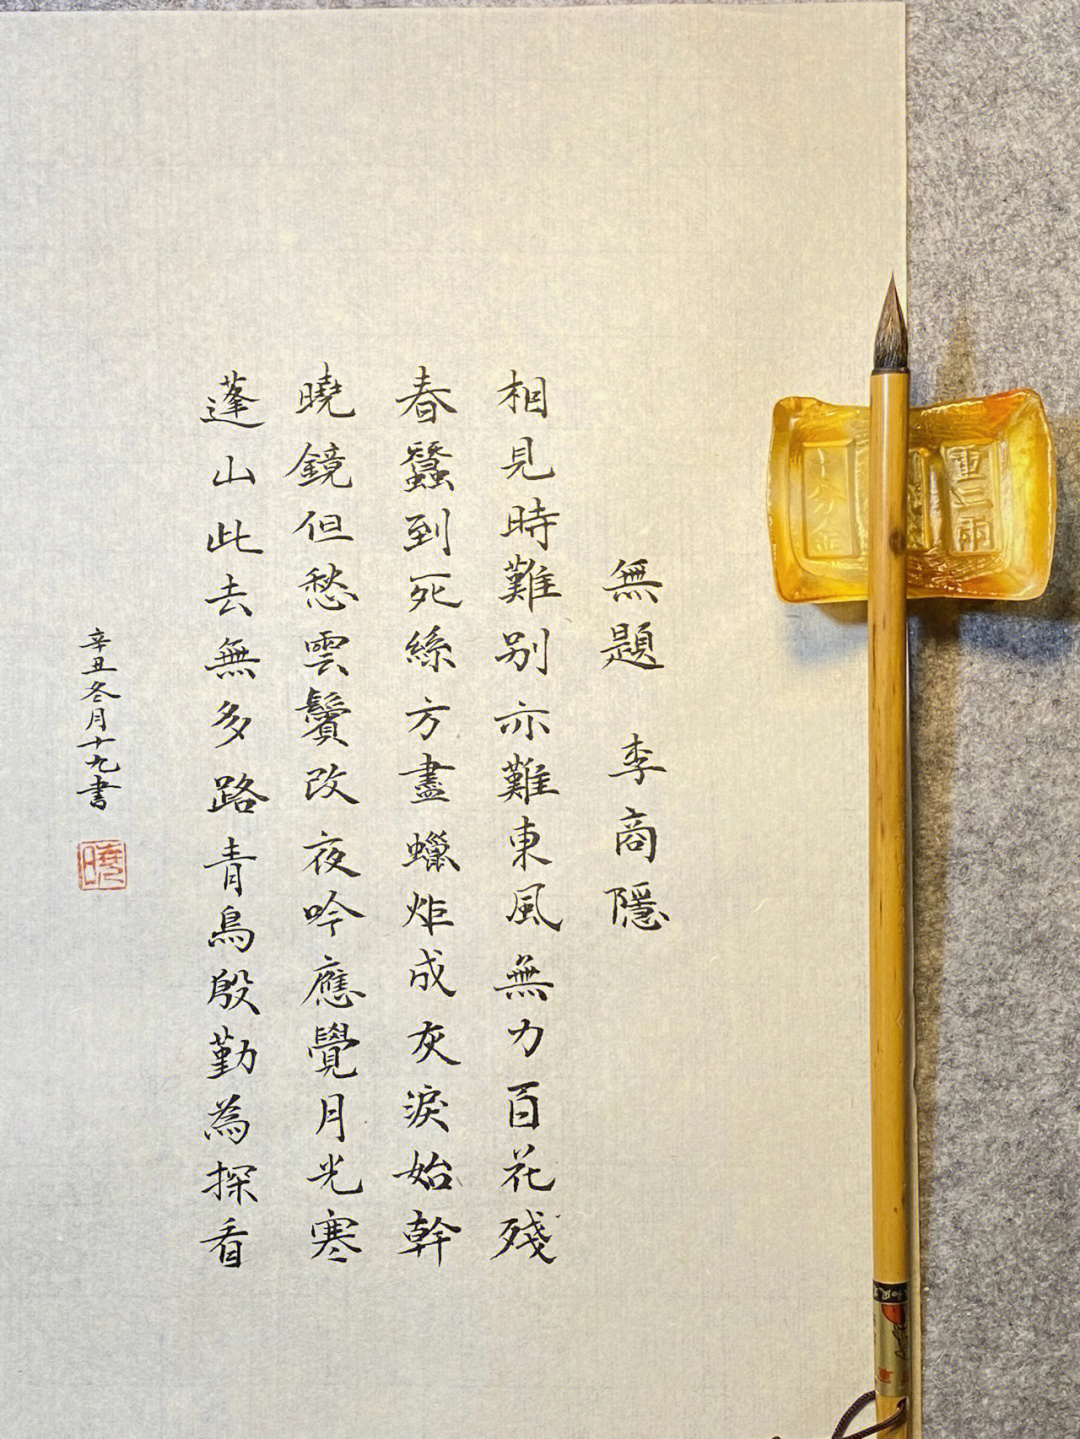 無題 李商隱
相見時難別亦難東風無力百花殘
春蠶到死絲方盡蠟炬成灰淚始幹
曉鏡但愁雲鬢改夜吟應覺月光寒
蓬山此去無多路青鳥殷勤為探看
辛丑冬月十九書
曉
重二兩
十分金